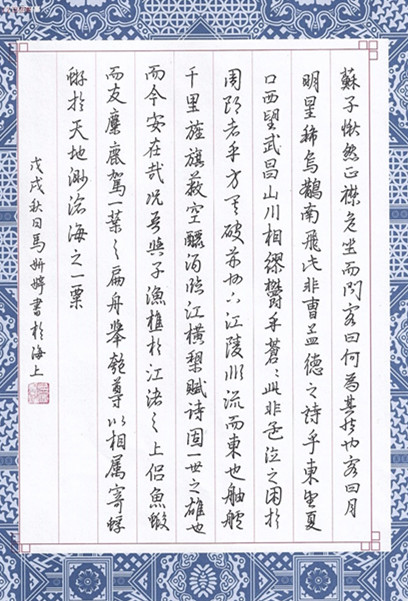 蘇子愀然正襟危坐而問客曰何為其然也客曰月
明星稀烏鵲南飛此非曹孟德之詩乎東望夏
口西望武昌山川相繆鬱乎蒼々此非孟德之困於
周郎者乎方其破荊州下江陵順流而東也舳艫
千里旌旗蔽空釃酒臨江橫槊賦詩固一世之雄也
而今安在哉況吾與子漁樵於江渚之上侶魚蝦
而友麋鹿駕一葉之扁舟舉匏尊以相屬寄蜉
蝣於天地渺滄海之一粟
戊戌秋日馬妍婷書於海上